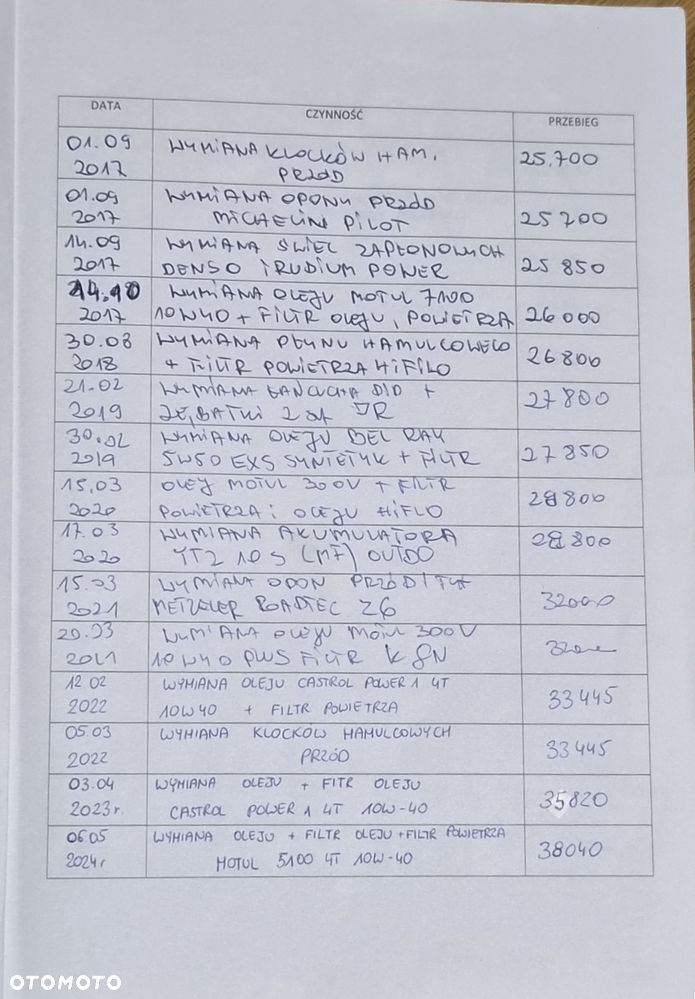 DATA CZYNNOŚĆ PRZEBIEG
01.09 WYMIANA KLOCKÓW HAM. 25.700
2017 PRZÓD
01.09 WYMIANA OPONY PRZÓD 25 700
2017 MICHELIN PILOT
14.09 WYMIANA ŚWIEC ZAPŁONOWYCH 25 850
2017 DENSO IRUDIUM POWER
14.10 WYMIANA OLEJU MOTUL 7100 26 000
2017 10W40 + FILTR OLEJU, POWIETRZA
30.08 WYMIANA PŁYNU HAMULCOWEGO 26 800
2018 + FILTR POWIETRZA HIFILO
21.02 WYMIANA ŁAŃCUCHA DID + 27 800
2019 ZĘBATKI 2 szt JR
30.02 WYMIANA OLEJU BEL RAY 27 850
2019 5W50 EXS SYNTETYK + FILTR
15.03 OLEJ MOTUL 300V + FILTR 28 800
2020 POWIETRZA i OLEJU HIFLO
17.03 WYMIANA AKUMULATORA 28 800
2020 YTZ 10 S (MF) OUTDO
15.03 WYMIANA OPON PRZÓD I TYŁ 32000
2021 METZELER ROADTEC Z6
20.03 WYMIANA OLEJU MOTUL 300V
2021 10W40 PLUS FILTR K&N
12.02 WYMIANA OLEJU CASTROL POWER 1 4T 33 445
2022 10W40 + FILTR POWIETRZA
05.03 WYMIANA KLOCKÓW HAMULCOWYCH 33 445
2022 PRZÓD
03.04 WYMIANA OLEJU + FITR OLEJU 35820
2023r. CASTROL POWER 1 4T 10W-40
06.05 WYMIANA OLEJU + FILTR OLEJU + FILTR POWIETRZA 38040
2024r MOTUL 5100 4T 10W-40
OTOMOTO